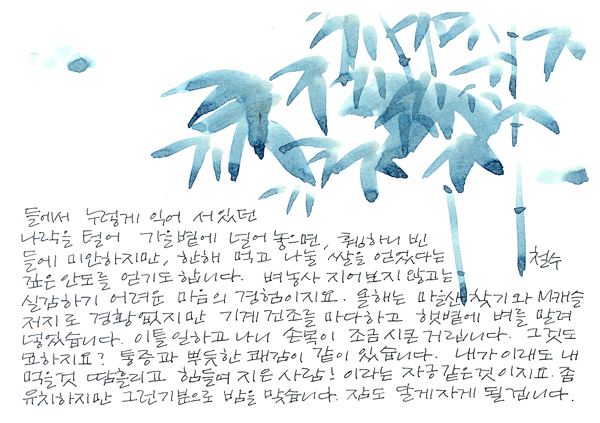 들에서 누렇게 익어 서있던
나락을 털어 가을볕에 널어 놓으면, 휑하니 빈
들에 미안하지만, 한해 먹고 나눌 쌀을 얻었다는
깊은 안도를 얻기도 합니다. 벼농사 지어보지 않고는
실감하기 어려운 마음의 경험이지요. 올해는 마을산찾기와 M캐슬
저지로 경황 없지만 기계건조를 마다하고 햇볕에 벼를 말려
넣었습니다. 이틀 일하고 나니 손목이 조금 시큰 거립니다. 그것도
묘하지요? 통증과 뿌듯한 쾌감이 같이 있습니다. 내가 이래도 내
먹을것 땀흘리고 힘들여 지은 사람! 이라는 자긍 같은것이지요. 좀
유치하지만 그런기분으로 밤을 맞습니다. 잠도 달게 자게 될겁니다.
철수